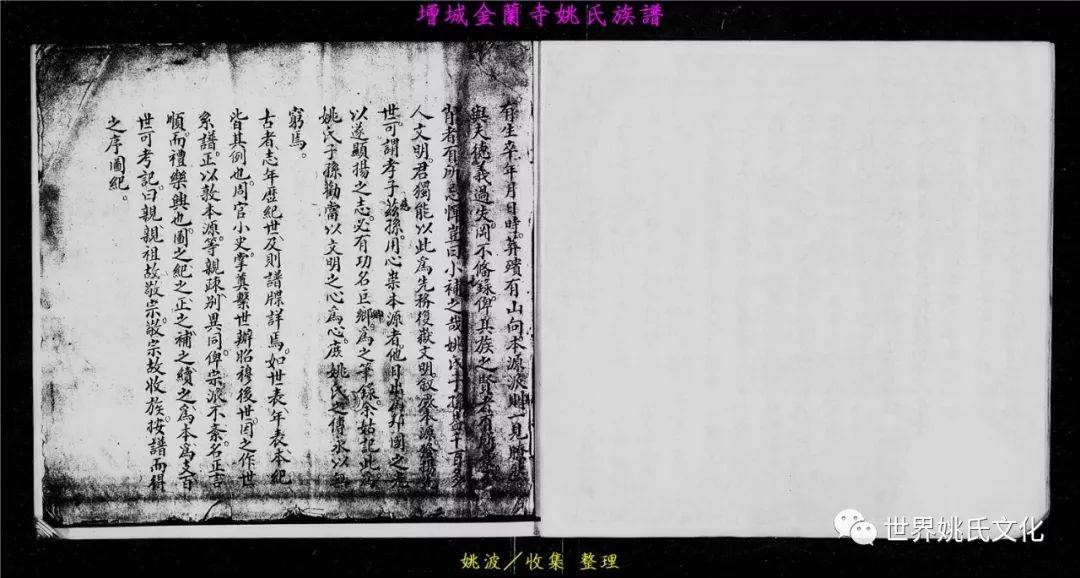 增城金蘭寺姚氏族譜
有生卒年月日時。葬殯有山向本源派則一見瞭然
與夫德義過失。罔不備錄。俾其族之賢者有所
者有所忌憚。豈曰小補之哉。姚氏子孫千百多
人文明。君獨能以此為先務。後嶽文明。叙本源
世可謂孝子慈孫。用心崇本源者。他日出為邦國之光
以遂顯揚之志。必有功名巨鄉卿為之筆錄。余姑記此為
姚氏子孫勸。當以文明之心為心。庶姚氏之傳永以無
窮焉。
古者、志年歷紀世、及則譜牒詳焉。如世表、年表、本紀
皆其例也。周官小史、掌奠繫世、辦昭穆。後世因之作世
系譜。正以敦本源。等親疎。別異同。俾宗派不紊。名正言
順。而禮樂興也。圖之紀之。正之補之續之。為本為支百
世可考。記曰。親親祖。故敬宗。敬宗故收族。按譜而得
之。序圖紀。
世界姚氏文化
姚波／收集 整理